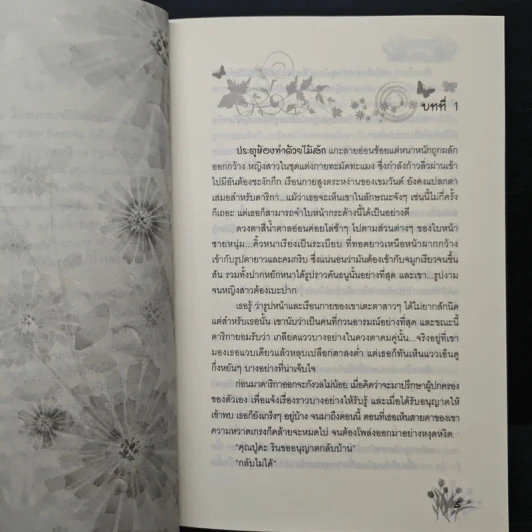 บทที่ 1
ประตูห้องทำด้วยไม้สัก แกะลายอ่อนช้อยแต่หนาหนักถูกผลัก
ออกกว้าง หญิงสาวในชุดแต่งกายทะมัดทะแมง ซึ่งกำลังก้าวลิ่วผ่านเข้า
ไปมีอันต้องชะงักกึก เรือนกายสูงตระหง่านของเขมวันต์ ยังคงแปลกตา
เสมอสำหรับดาริกา...แม้ว่าเธอจะเห็นเขาในลักษณะจังๆ เช่นนี้ไม่กี่ครั้ง
ก็เถอะ แต่เธอก็สามารถจำใบหน้ากระด้างนี้ได้เป็นอย่างดี
ดวงตาสีน้ำตาลอ่อนค่อยไล่ช้าๆ ไปตามส่วนต่างๆ ของใบหน้า
ชายหนุ่ม...คิ้วหนาเรียงเป็นระเบียบ ที่ทอดยาวเหนือหน้าผากกว้าง
เข้ากับรูปตายาวและคมกริบ ซึ่งแน่นอนว่ามันต้องเข้ากับจมูกเรียวจนขึ้น
สัน รวมทั้งปากหยักหนาได้รูปราวคันธนูนั้นอย่างที่สุด และเขา...รูปงาม
จนหญิงสาวต้องเบะปาก
เธอรู้ ว่ารูปหน้าและเรือนกายของเขาเตะตาสาวๆ ได้ไม่ยากสักนิด
แต่สำหรับเธอนั้น เขานับว่าเป็นคนที่กวนอารมณ์อย่างที่สุด และขณะนี้
ดาริกายอมรับว่า เกลียดแววบางอย่างในดวงตาคมคู่นั้น...จริงอยู่ที่เขา
มองเธอแวบเดียวแล้วหลุบเปลือกตาลงต่ำ แต่เธอก็ทันเห็นแววเอ็นดู
กึ่งหยันๆ บางอย่างที่น่าเจ็บใจ
ก่อนมาดาริกาออกจะกังวลไม่น้อย เมื่อคิดว่าจะมาปรึกษาผู้ปกครอง
ของตัวเอง เพื่อแจ้งเรื่องราวบางอย่างให้รับรู้ และเมื่อได้รับอนุญาตให้
เข้าพบ เธอก็ยังเกร็งๆ อยู่บ้าง จนมาถึงตอนนี้ ตอนที่เธอเห็นสายตาของเขา
ความหวาดเกรงก็คล้ายจะหมดไป จนต้องโพล่งออกมาอย่างหงุดหงิด
"คุณปู่คะ รินขออนุญาตกลับบ้าน"
"กลับไม่ได้"